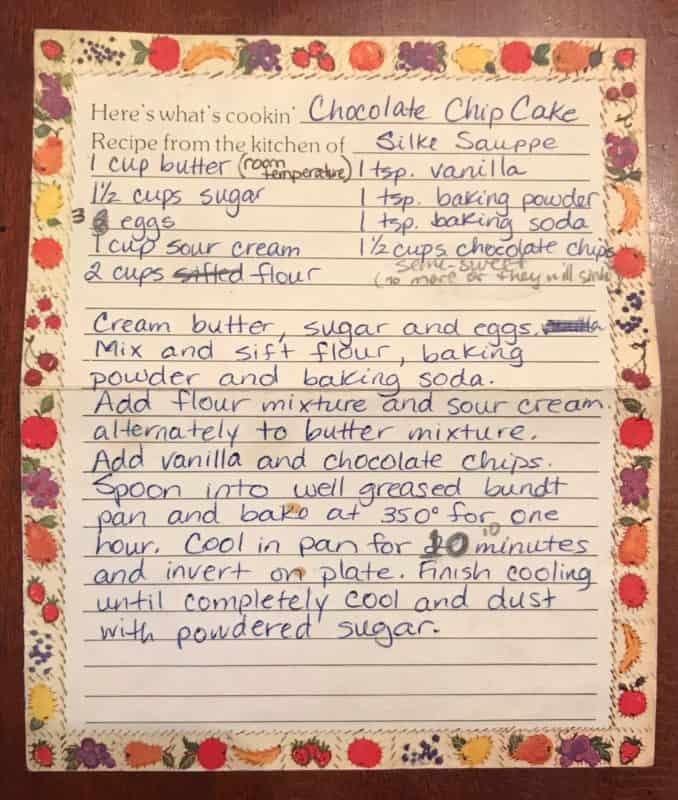 Here's what's cookin' Chocolate Chip Cake
Recipe from the kitchen of Silke Sauppe
1 cup butter (room temperature) 1 tsp. vanilla
1½ cups sugar 1 tsp. baking powder
3 eggs 1 tsp. baking soda
1 cup sour cream 1½ cups chocolate chips
2 cups sifted flour semi-sweet
(no more or they will sink)
Cream butter, sugar and eggs.
Mix and sift flour, baking
powder and baking soda.
Add flour mixture and sour cream
alternately to butter mixture.
Add vanilla and chocolate chips.
Spoon into well greased bundt
pan and bake at 350° for one
hour. Cool in pan for 10 minutes
and invert on plate. Finish cooling
until completely cool and dust
with powdered sugar.